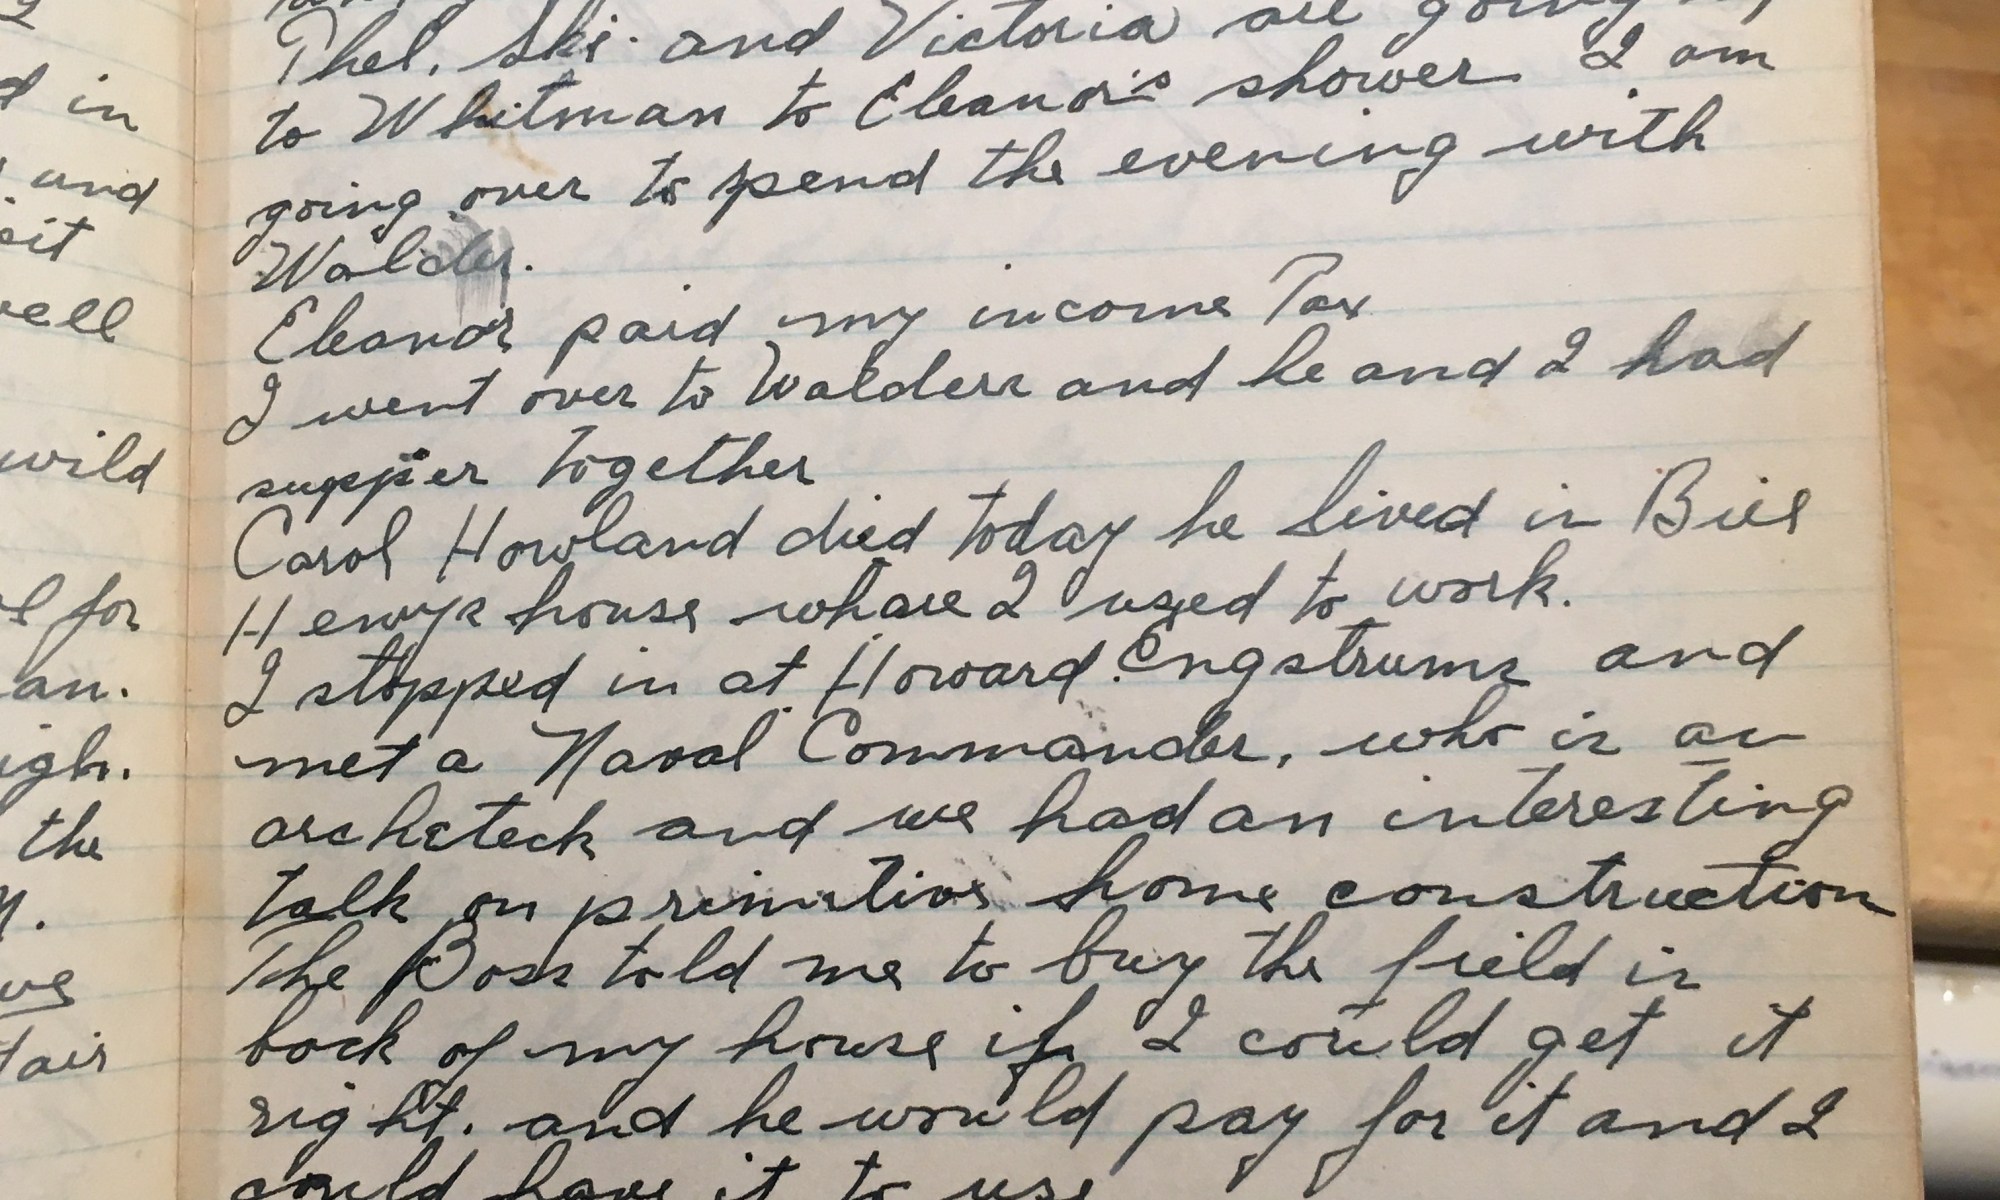 d in
and
sit
well
wild
for
an.
the
us
tair
Thel, Ski. and Victoria are going
to Whitman to Eleanor's shower. I am
going over to spend the evening with
Walder.
Eleanor paid my income Tax
I went over to Walders and he and I had
supper together
Carol Howland died today he lived in Bill
Henrys house whare I used to work.
I stopped in at Howard Engstrums and
met a Naval Commander, who is an
archeteck and we had an interesting
talk on primitive home construction
The Boss told me to buy the field in
back of my house if I could get it
right. and he would pay for it and I
could have it to use